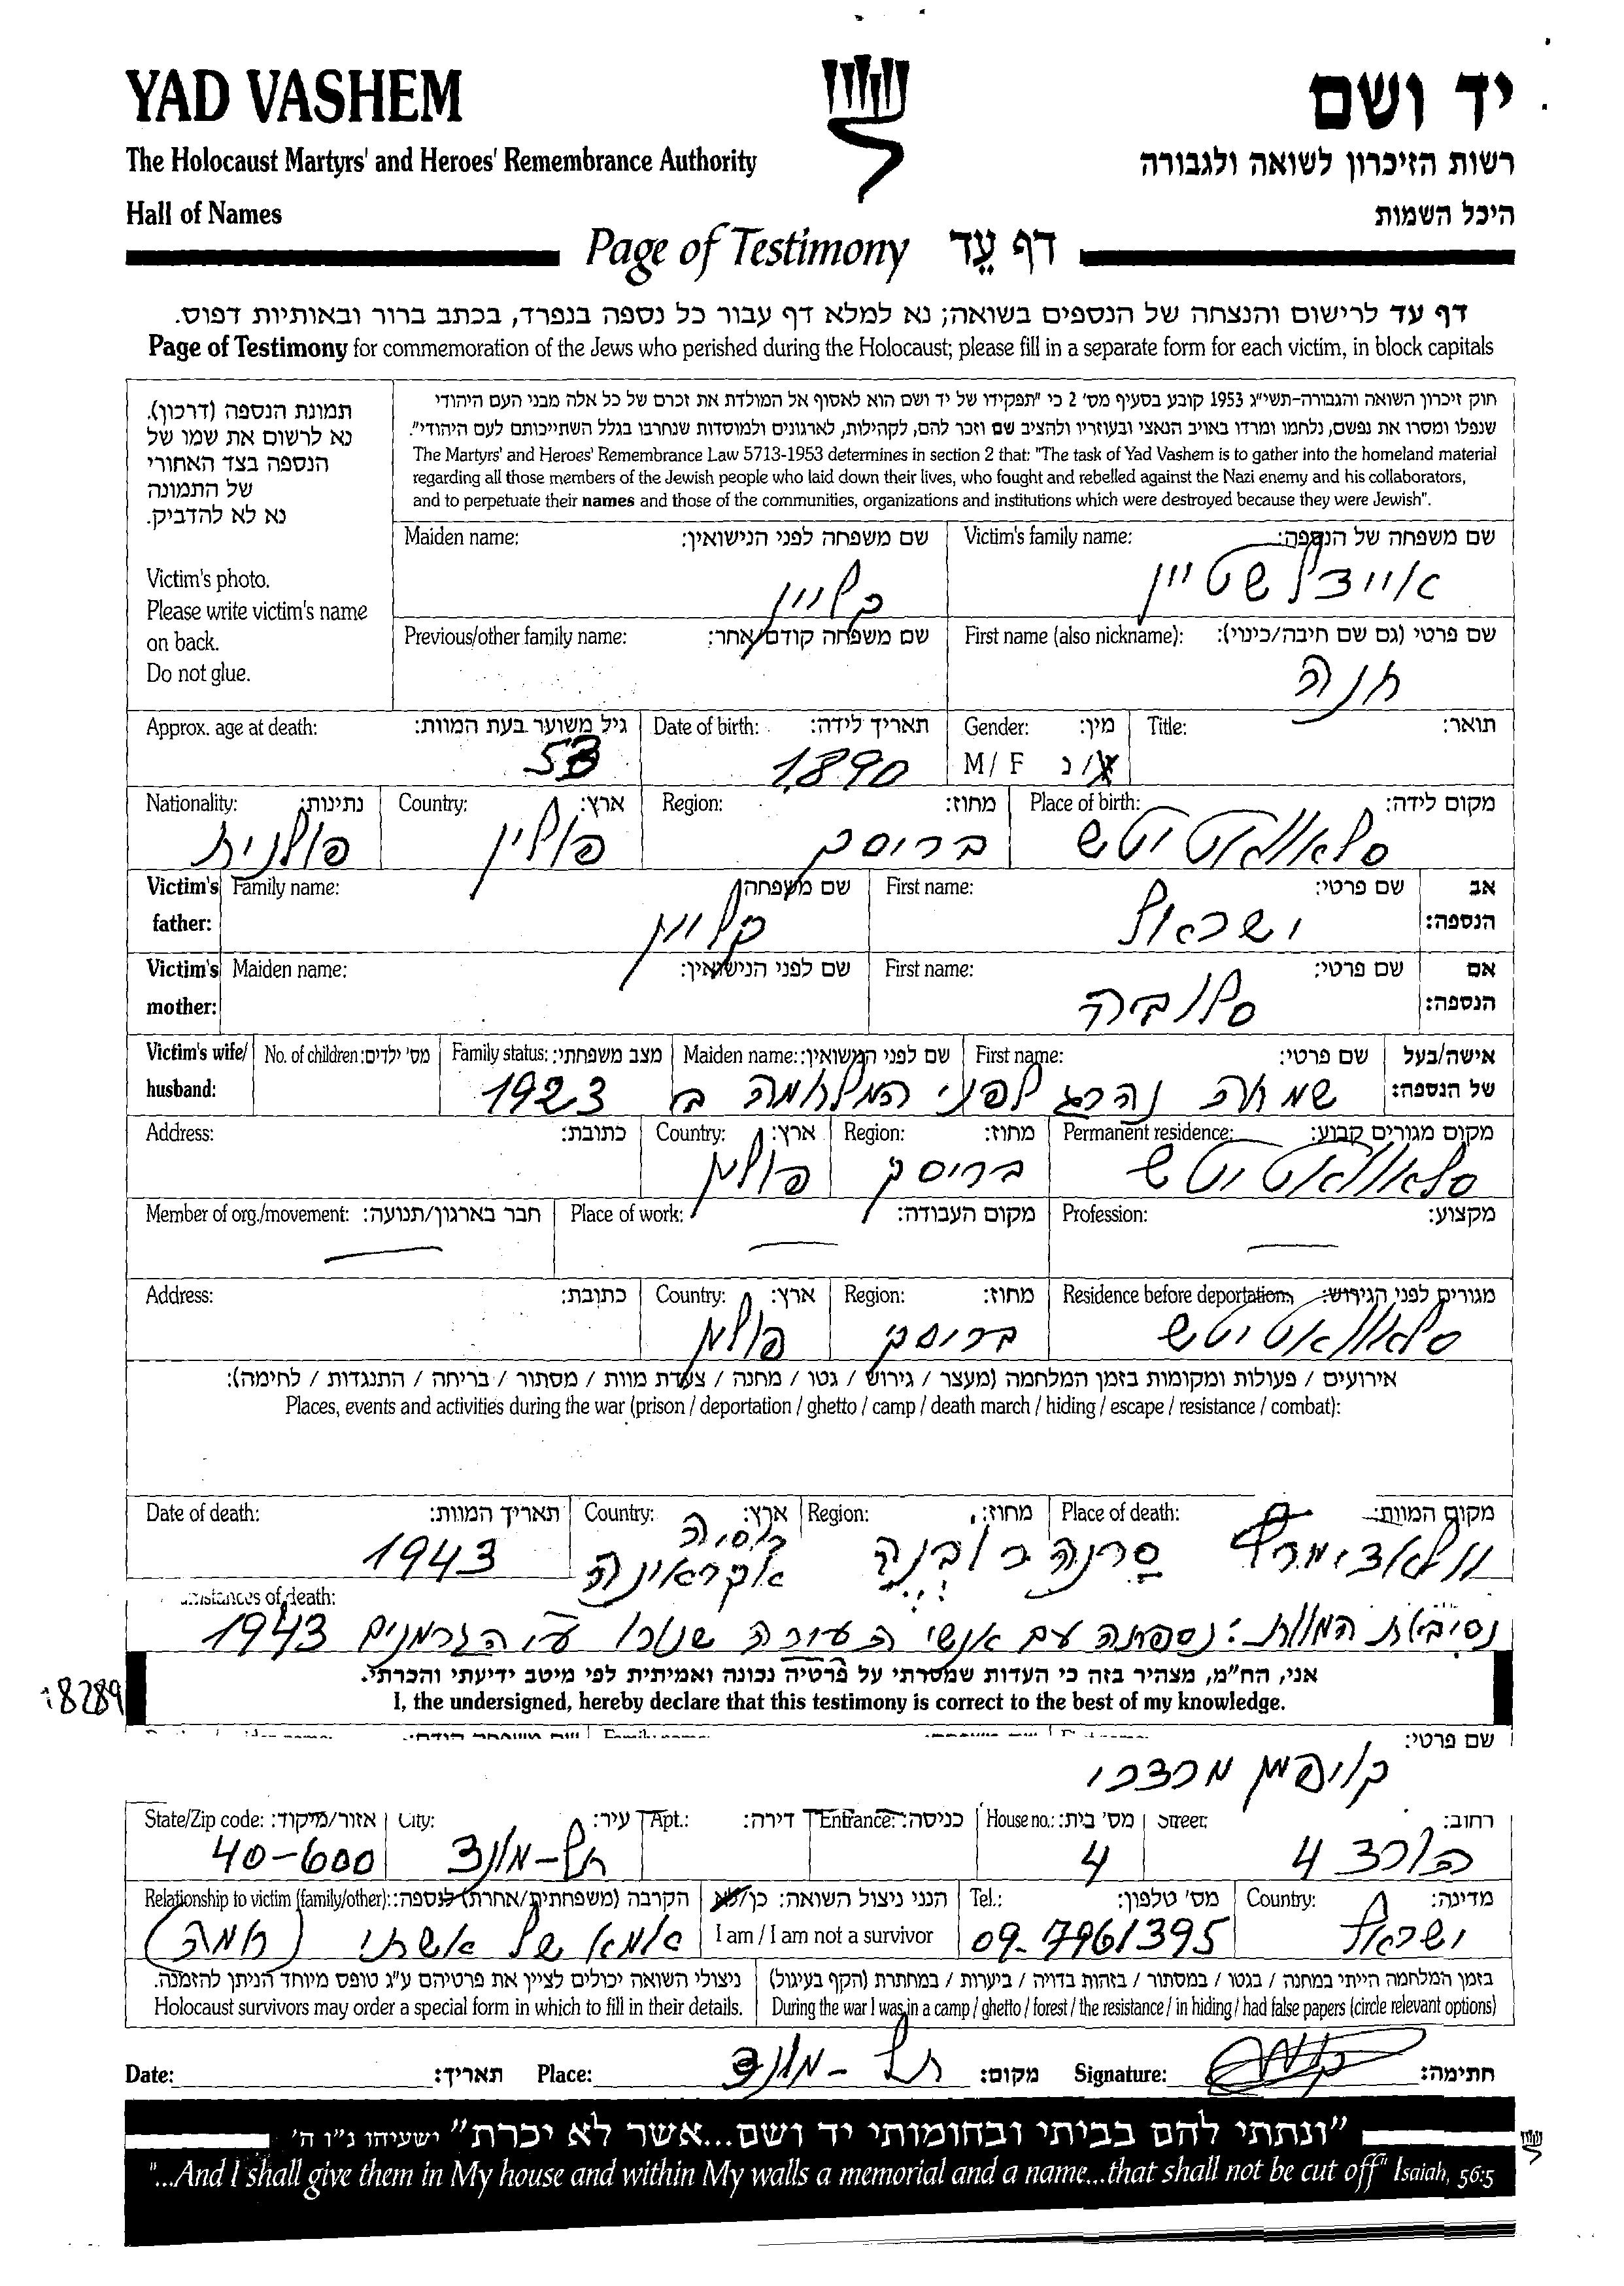 YAD VASHEM
יד ושם
The Holocaust Martyrs' and Heroes' Remembrance Authority
רשות הזיכרון לשואה ולגבורה
Hall of Names
היכל השמות
Page of Testimony דף עֵד
דף עד לרישום והנצחה של הנספים בשואה; נא למלא דף עבור כל נספה בנפרד, בכתב ברור ובאותיות דפוס.
Page of Testimony for commemoration of the Jews who perished during the Holocaust; please fill in a separate form for each victim, in block capitals
תמונת הנספה (דרכון).
נא לרשום את שמו של
הנספה בצד האחורי
של התמונה
נא לא להדביק.
Victim's photo.
Please write victim's name
on back.
Do not glue.
חוק זיכרון השואה והגבורה-תשי"ג 1953 קובע בסעיף מס' 2 כי "תפקידו של יד ושם הוא לאסוף אל המולדת את זכרם של כל אלה מבני העם היהודי
שנפלו ומסרו את נפשם, נלחמו ומרדו באויב הנאצי ובעוזריו ולהציב שם וזכר להם, לקהילות, לארגונים ולמוסדות שנחרבו בגלל השתייכותם לעם היהודי".
The Martyrs' and Heroes' Remembrance Law 5713-1953 determines in section 2 that: "The task of Yad Vashem is to gather into the homeland material
regarding all those members of the Jewish people who laid down their lives, who fought and rebelled against the Nazi enemy and his collaborators,
and to perpetuate their names and those of the communities, organizations and institutions which were destroyed because they were Jewish".
Victim's family name: שם משפחה של הנספה:
איידלשטיין
Maiden name: שם משפחה לפני הנישואין:
קליין
First name (also nickname): שם פרטי (גם שם חיבה/כינוי):
חנה
Previous/other family name: שם משפחה קודם/אחר:
Title: תואר:
Gender: מין:
M / F ז/נ
Date of birth: תאריך לידה:
1890
Approx. age at death: גיל משוער בעת המוות:
53
Place of birth: מקום לידה:
סלאוואטיטש
Region: מחוז:
בריסק
Country: ארץ:
פולין
Nationality: נתינות:
פולנית
Victim's father: אב הנספה:
First name: שם פרטי:
ישראל
Family name: שם משפחה:
קליין
Victim's mother: אם הנספה:
First name: שם פרטי:
סלובה
Maiden name: שם לפני הנישואין:
Victim's wife/ husband: אישה/בעל של הנספה:
First name: שם פרטי:
Maiden name: שם לפני הנישואין:
Family status: מצב משפחתי:
No. of children: מס' ילדים:
שמחה נהרג לפני המלחמה ב 1923
Permanent residence: מקום מגורים קבוע:
סלאוואטיטש
Region: מחוז:
בריסק
Country: ארץ:
פולין
Address: כתובת:
Profession: מקצוע:
Place of work: מקום העבודה:
Member of org./movement: חבר בארגון/תנועה:
Residence before deportation: מגורים לפני הגירוש:
סלאוואטיטש
Region: מחוז:
בריסק
Country: ארץ:
פולין
Address: כתובת:
אירועים / פעולות ומקומות בזמן המלחמה (מעצר / גירוש / גטו / מחנה / צעדת מוות / מסתור / בריחה / התנגדות / לחימה):
Places, events and activities during the war (prison / deportation / ghetto / camp / death march / hiding / escape / resistance / combat):
Place of death: מקום המוות:
Region: מחוז:
סרנה רובנה
Country: ארץ:
רוסיה
אקראינה
Date of death: תאריך המוות:
1943
of death:
נסיבות המוות: נספתה עם אנשי העיירה שנורו ע"י הגרמנים 1943
אני, הח"מ, מצהיר בזה כי העדות שמסרתי על פרטיה נכונה ואמיתית לפי מיטב ידיעתי והכרתי.
I, the undersigned, hereby declare that this testimony is correct to the best of my knowledge.
18289
שם פרטי:
קויפמן מרדכי
Street: רחוב:
הורד 4
House no.: מס' בית:
4
Entrance: כניסה:
Apt.: דירה:
City: עיר:
תל-מונד
State/Zip code: אזור/מיקוד:
40-600
Country: מדינה:
ישראל
Tel.: מס' טלפון:
09-7961395
הנני ניצול השואה: כן/לא
I am / I am not a survivor
Relationship to victim (family/other): הקרבה (משפחתית/אחרת) לנספה:
אמא של אשתי (חמה)
בזמן המלחמה הייתי במחנה / בגטו / במסתור / בזהות בדויה / ביערות / במחתרת (הקף בעיגול)
During the war I was in a camp / ghetto / forest / the resistance / in hiding / had false papers (circle relevant options)
ניצולי השואה יכולים לציין את פרטיהם ע"ג טופס מיוחד הניתן להזמנה.
Holocaust survivors may order a special form in which to fill in their details.
Date: תאריך: Place: תל-מונד מקום: Signature: חתימה:
"ונתתי להם בביתי ובחומותי יד ושם...אשר לא יכרת" ישעיהו נ"ו ה'
"...And I shall give them in My house and within My walls a memorial and a name...that shall not be cut off" Isaiah, 56:5